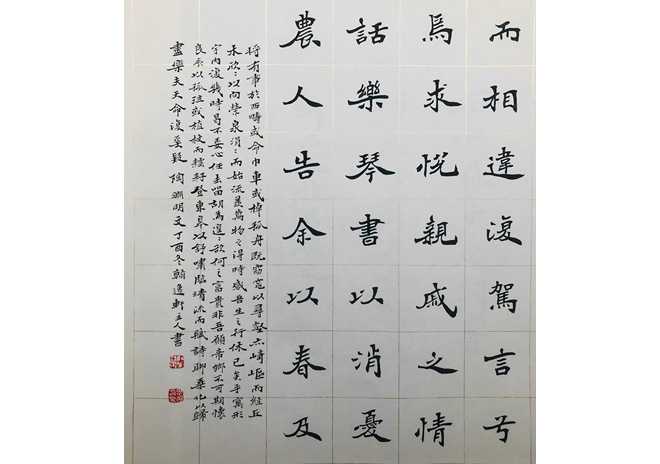 而相違復駕言兮
焉求悅親戚之情
話樂琴書以消憂
農人告余以春及
將有事於西疇或命巾車或棹孤舟既窈窕以尋壑亦崎嶇而經丘
木欣〻以向榮泉涓〻而始流羨萬物之得時感吾生之行休已矣乎寓形
宇內復幾時曷不委心任去留胡為遑〻欲何之富貴非吾願帝鄉不可期懷
良辰以孤往或植杖而耘耔登東皋以舒嘯臨清流而賦詩聊乘化以歸
盡樂夫天命復奚疑 陶淵明文丁酉冬翰逸軒主人書